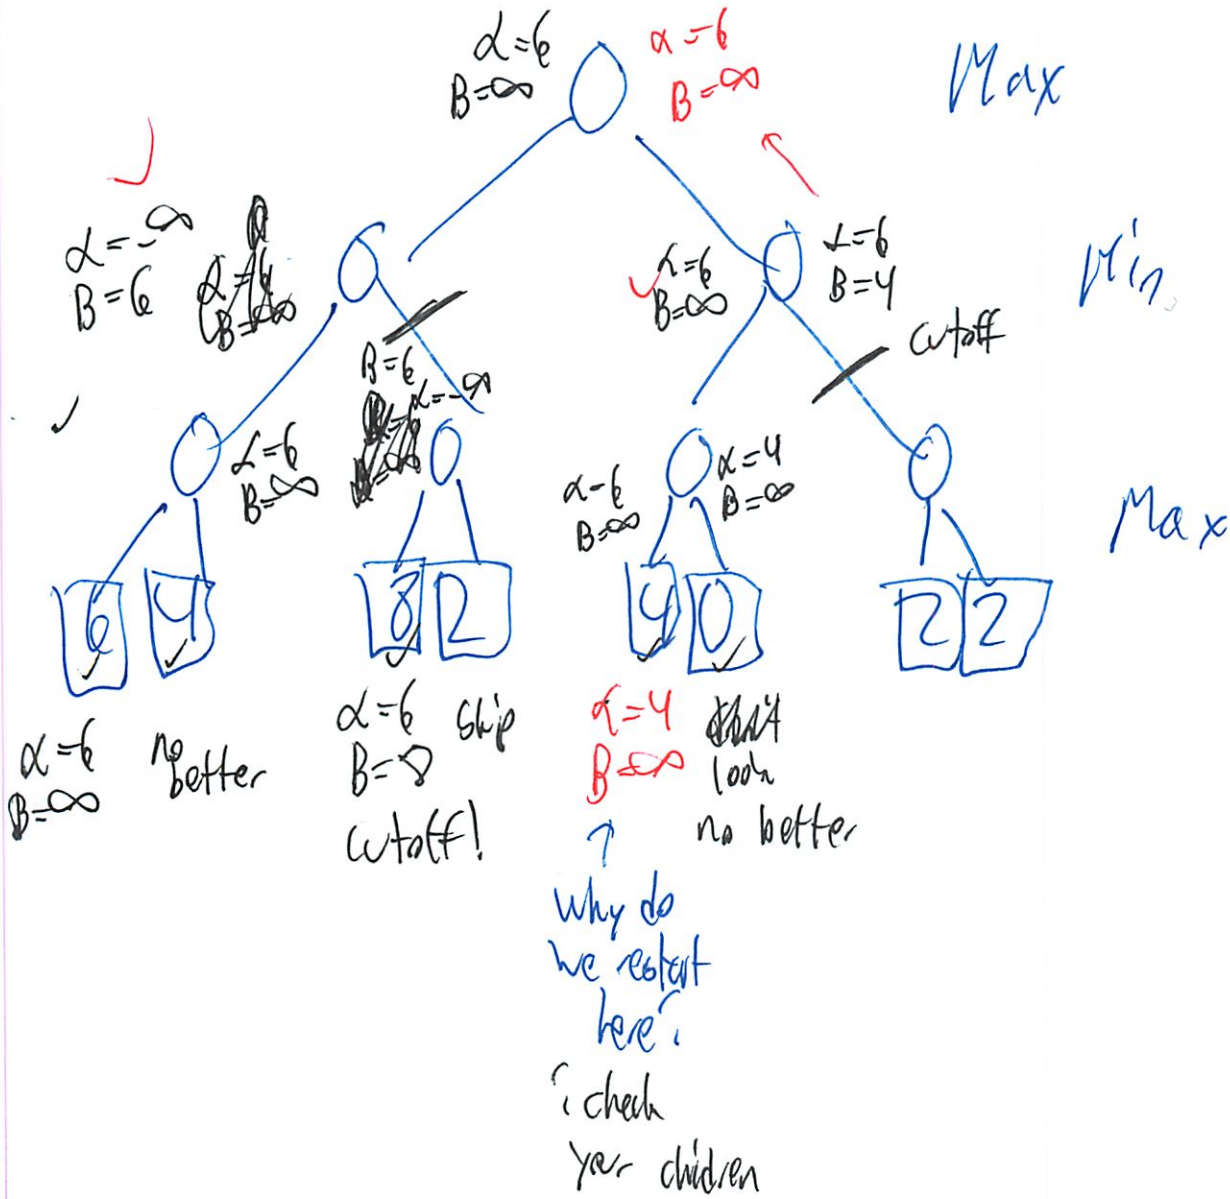 α=6
B=∞
α=6
B=∞
Max
α=-∞
B=6
α=6
B=∞
α=6
B=4
Min
cutoff
B=6
α=-∞
α=6
B=∞
α-6
B=∞
α=4
B=∞
Max
6 4 8 2 4 0 2 2
α=6
B=∞
no
better
α=6
B=8
cutoff!
skip
α=4
B=∞
look
no better
↑
why do
we restart
here?
check
your children